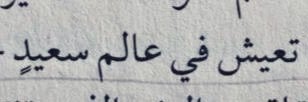 تعيش في عالم سعيدٍ